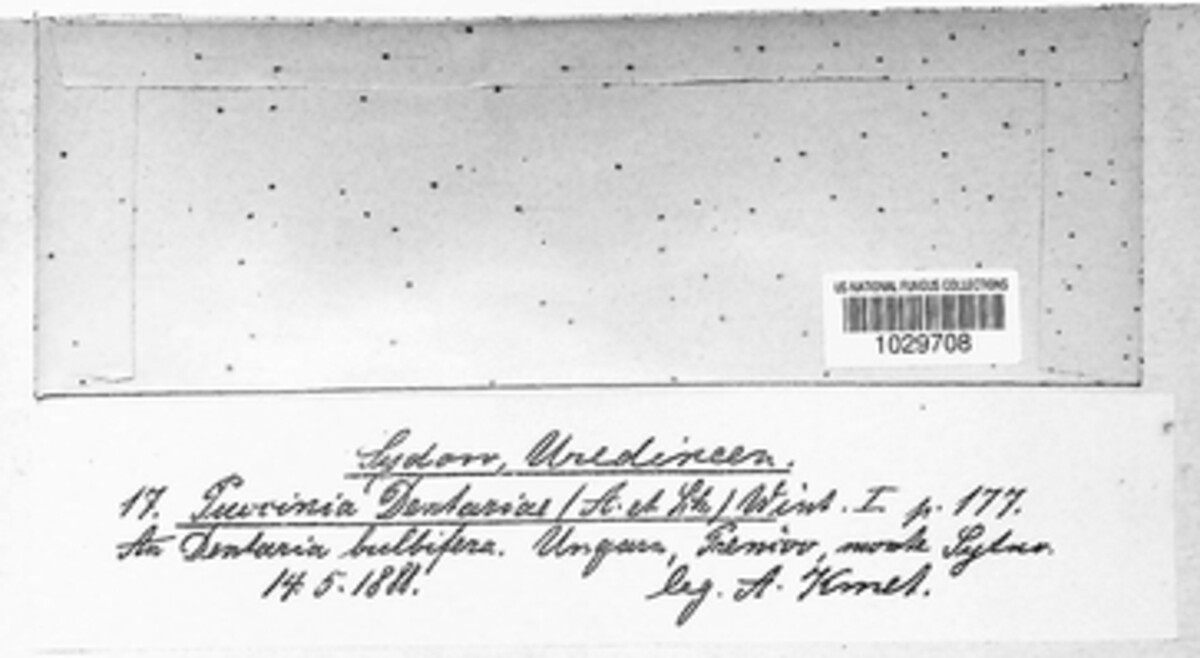 US NATIONAL FUNGUS COLLECTIONS
1029708
Sydow, Uredineen.
17. Puccinia Dentariae (A. et Sch.) Wint. I. p. 177.
An Dentaria bulbifera. Ungarn, Prencov, monte Sytno.
14. 5. 1888. leg. A. Kmet.